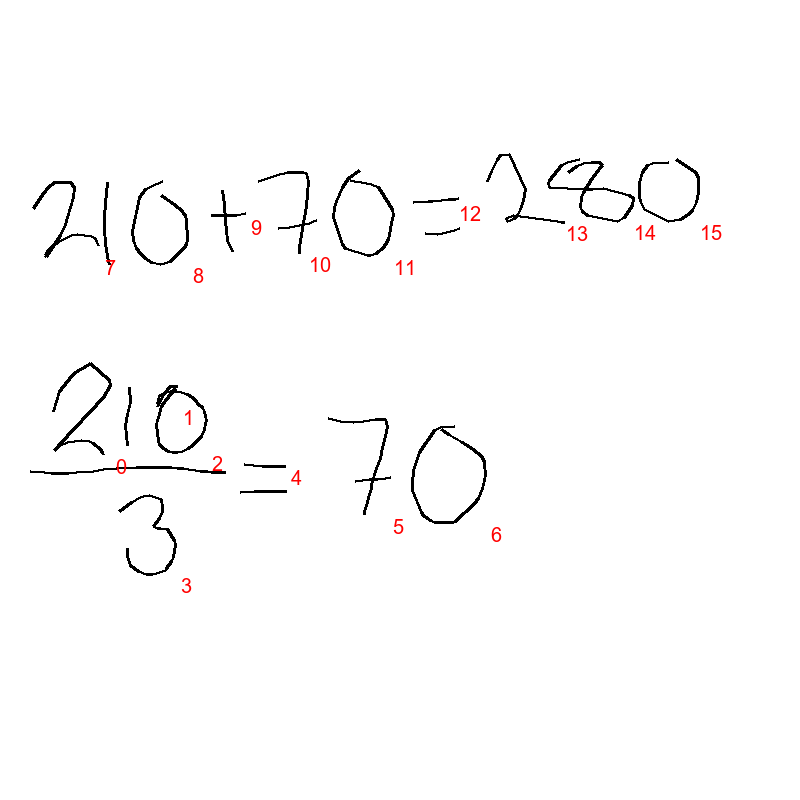 210+70=280
7 8 9 10 11 12 13 14 15
210/3=70
0 1 2 3 4 5 6